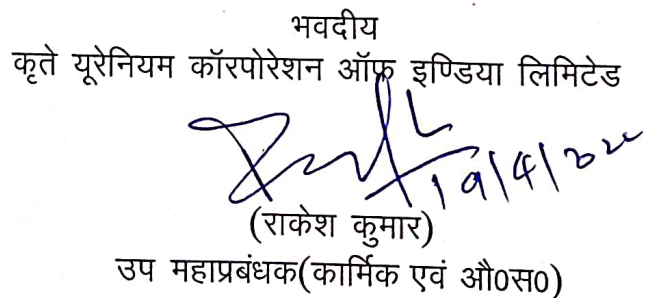 भवदीय
कृते यूरेनियम कॉरपोरेशन ऑफ इण्डिया लिमिटेड
19/4/22
(राकेश कुमार)
उप महाप्रबंधक(कार्मिक एवं औ0स0)